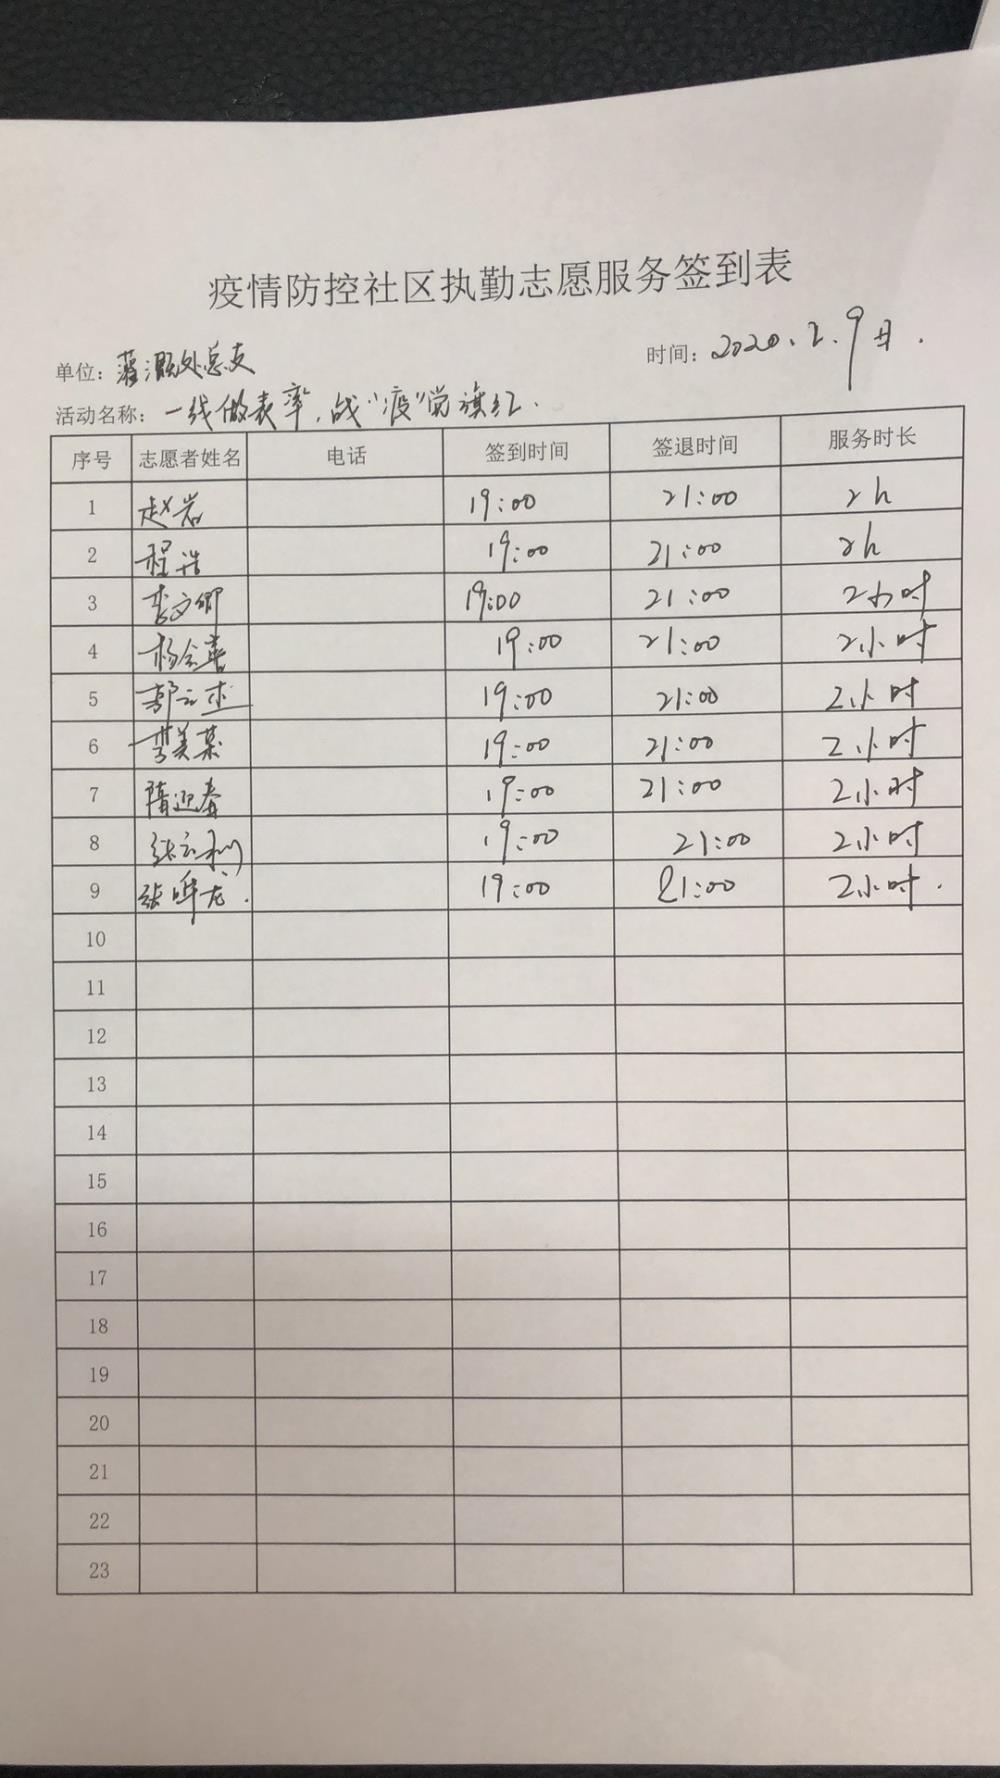 疫情防控社区执勤志愿服务签到表
单位: 处总支
时间: 2020.2.9日.
活动名称: 一线做表率,战"疫"党旗红.
序号 志愿者姓名 电话 签到时间 签退时间 服务时长
1 赵岩 19:00 21:00 2h
2 程浩 19:00 21:00 2h
3 李文卿 19:00 21:00 2小时
4 杨会喜 19:00 21:00 2小时
5 郭云杰 19:00 21:00 2小时
6 李美菜 19:00 21:00 2小时
7 隋迎春 19:00 21:00 2小时
8 张云利 19:00 21:00 2小时
9 张晔龙. 19:00 21:00 2小时.
10
11
12
13
14
15
16
17
18
19
20
21
22
23